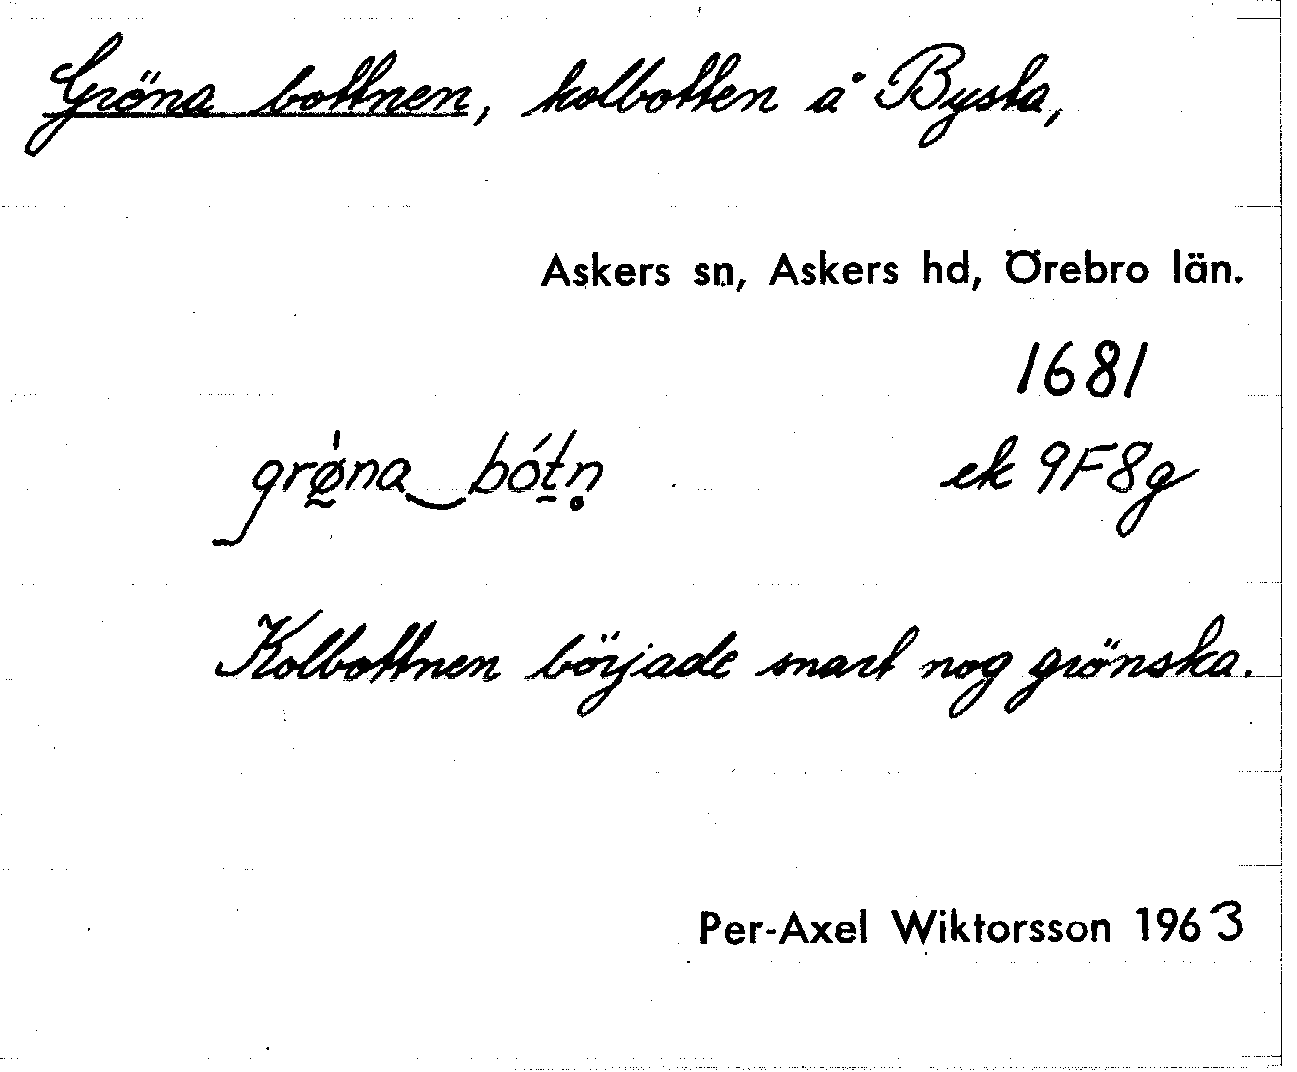 Gröna bottnen, kolbotten å Bysta,
Askers sn, Askers hd, Örebro län.
1681
grø̀na‿bótn̥ ek 9F8g
Kolbottnen började snart nog grönska.
Per-Axel Wiktorsson 1963